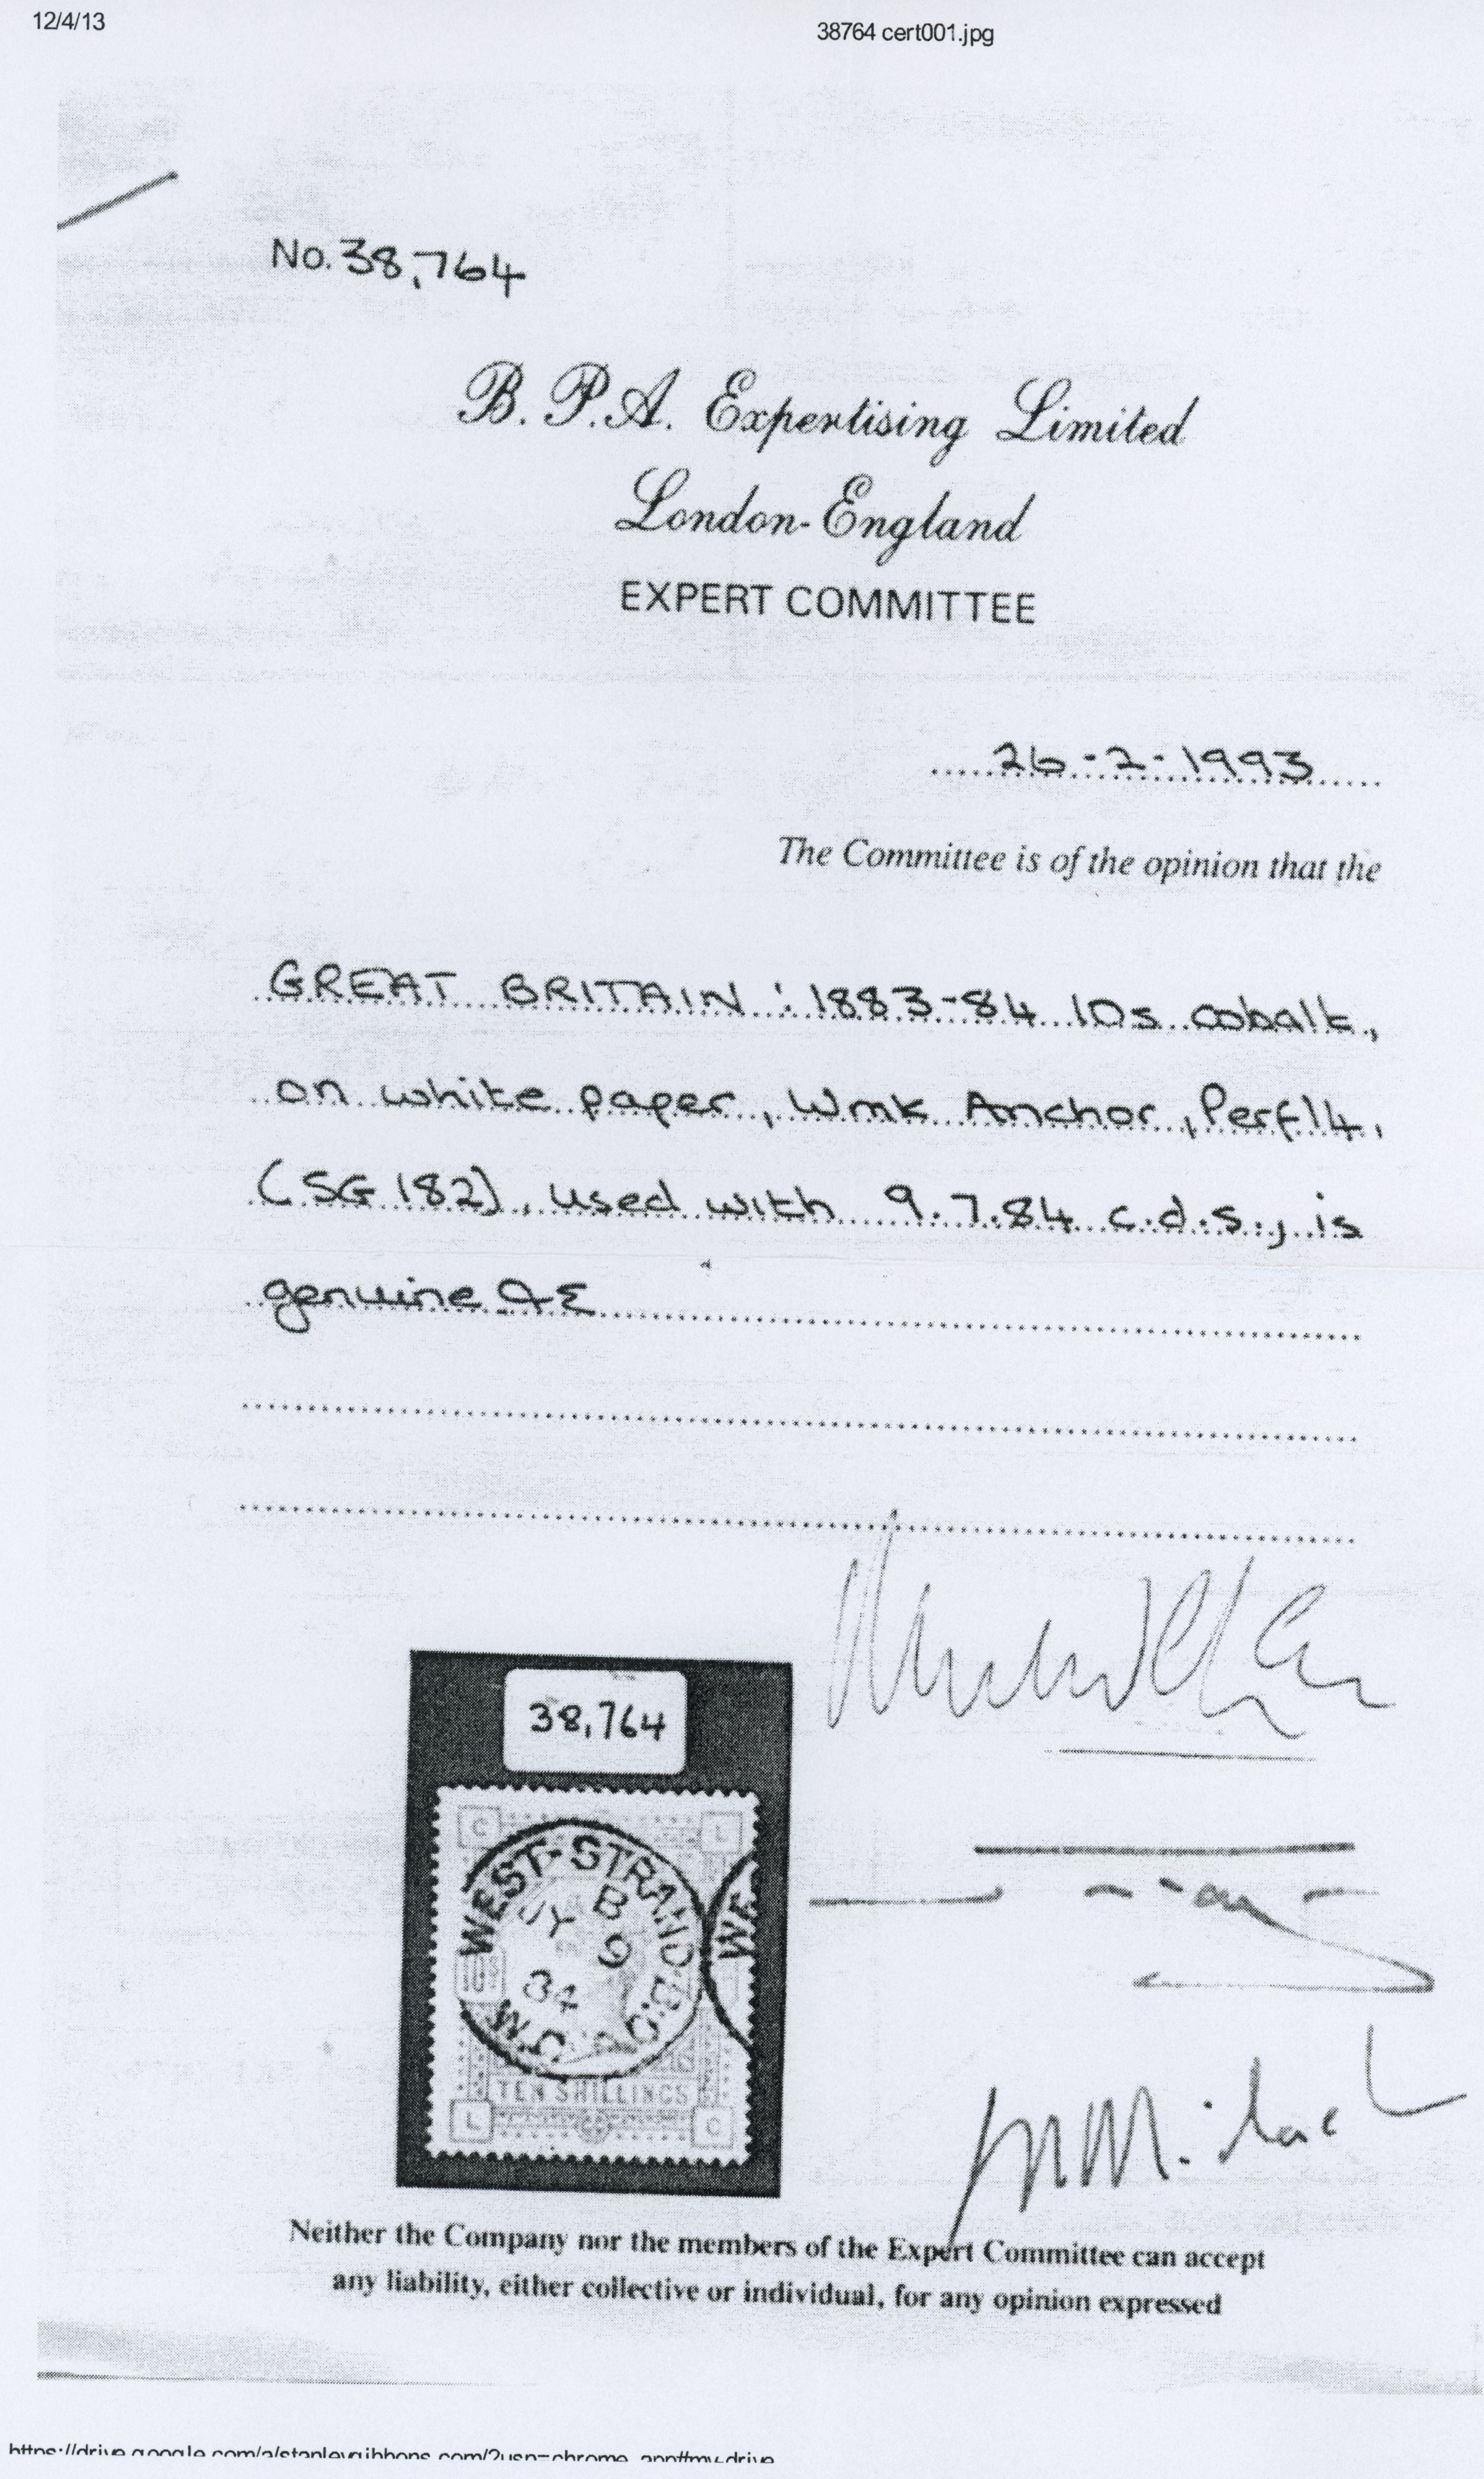 12/4/13
38764 cert001.jpg
No. 38,764
B. P. A. Expertising Limited
London-England
EXPERT COMMITTEE
26-2-1993
The Committee is of the opinion that the
GREAT BRITAIN : 1883-84 10s cobalt,
on white paper, Wmk Anchor, Perf 14,
(SG 182), used with 9.7.84 c.d.s., is
genuine
38,764
C L
WEST-STRAND
B
JY 9
84
W.C.
WE
TEN SHILLINGS
L C
Neither the Company nor the members of the Expert Committee can accept
any liability, either collective or individual, for any opinion expressed
https://drive.google.com/a/stanleygibbons.com/?usp=chrome_app#my-drive